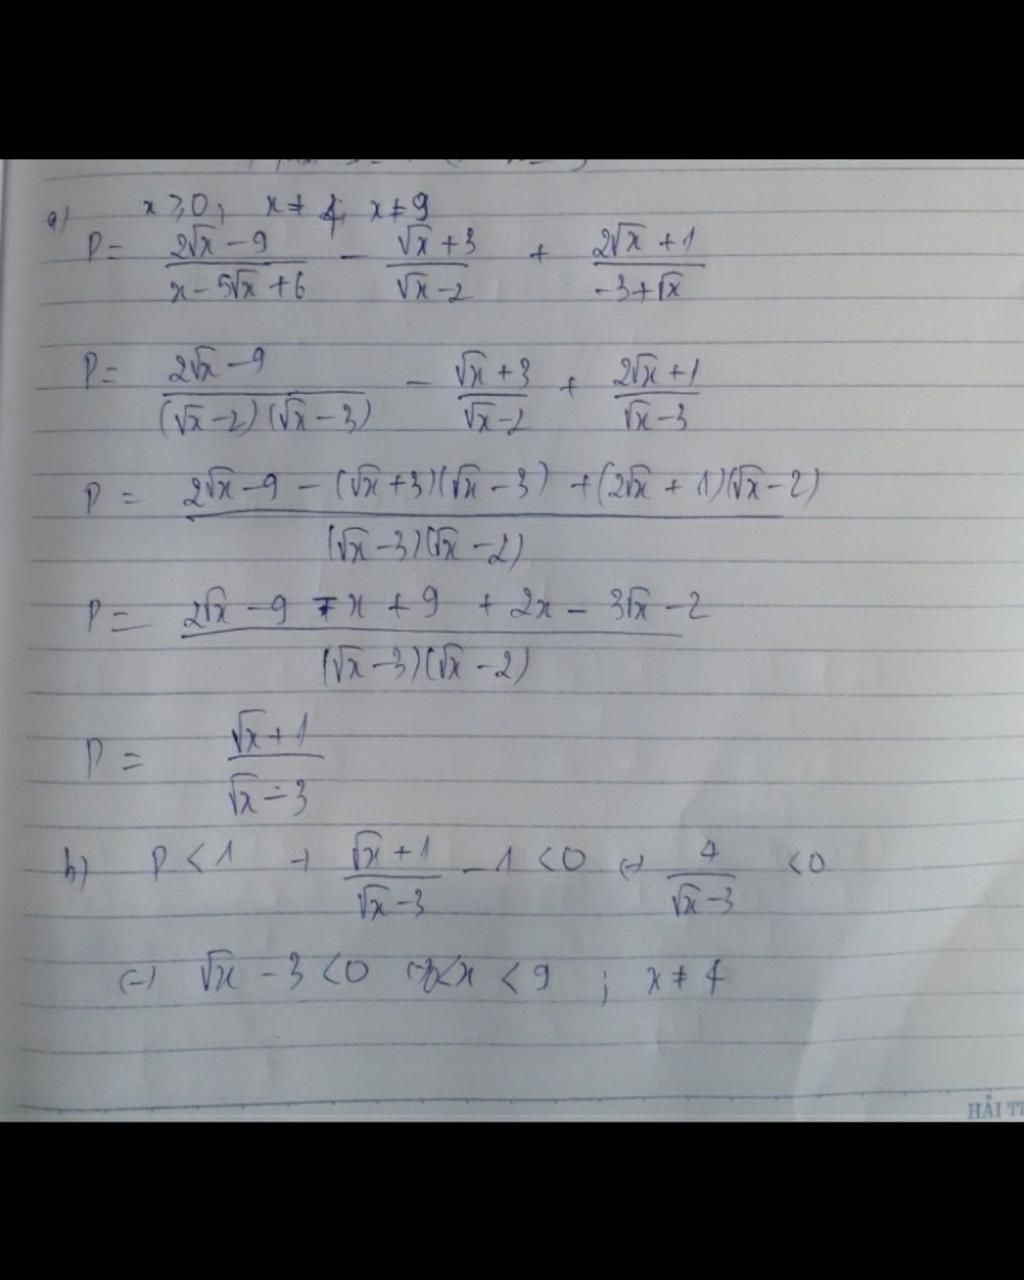 a) x ≥ 0; x ≠ 4; x ≠ 9
P = (2√x − 9)/(x − 5√x + 6) − (√x + 3)/(√x − 2) + (2√x + 1)/(−3 + √x)
P = (2√x − 9)/((√x − 2)(√x − 3)) − (√x + 3)/(√x − 2) + (2√x + 1)/(√x − 3)
P = (2√x − 9 − (√x + 3)(√x − 3) + (2√x + 1)(√x − 2))/((√x − 3)(√x − 2))
P = (2√x − 9 − x + 9 + 2x − 3√x − 2)/((√x − 3)(√x − 2))
P = (√x + 1)/(√x − 3)
b) P < 1 → (√x + 1)/(√x − 3) − 1 < 0 ⇔ 4/(√x − 3) < 0
⇔ √x − 3 < 0 ⇔ x < 9 ; x ≠ 4
HẢI